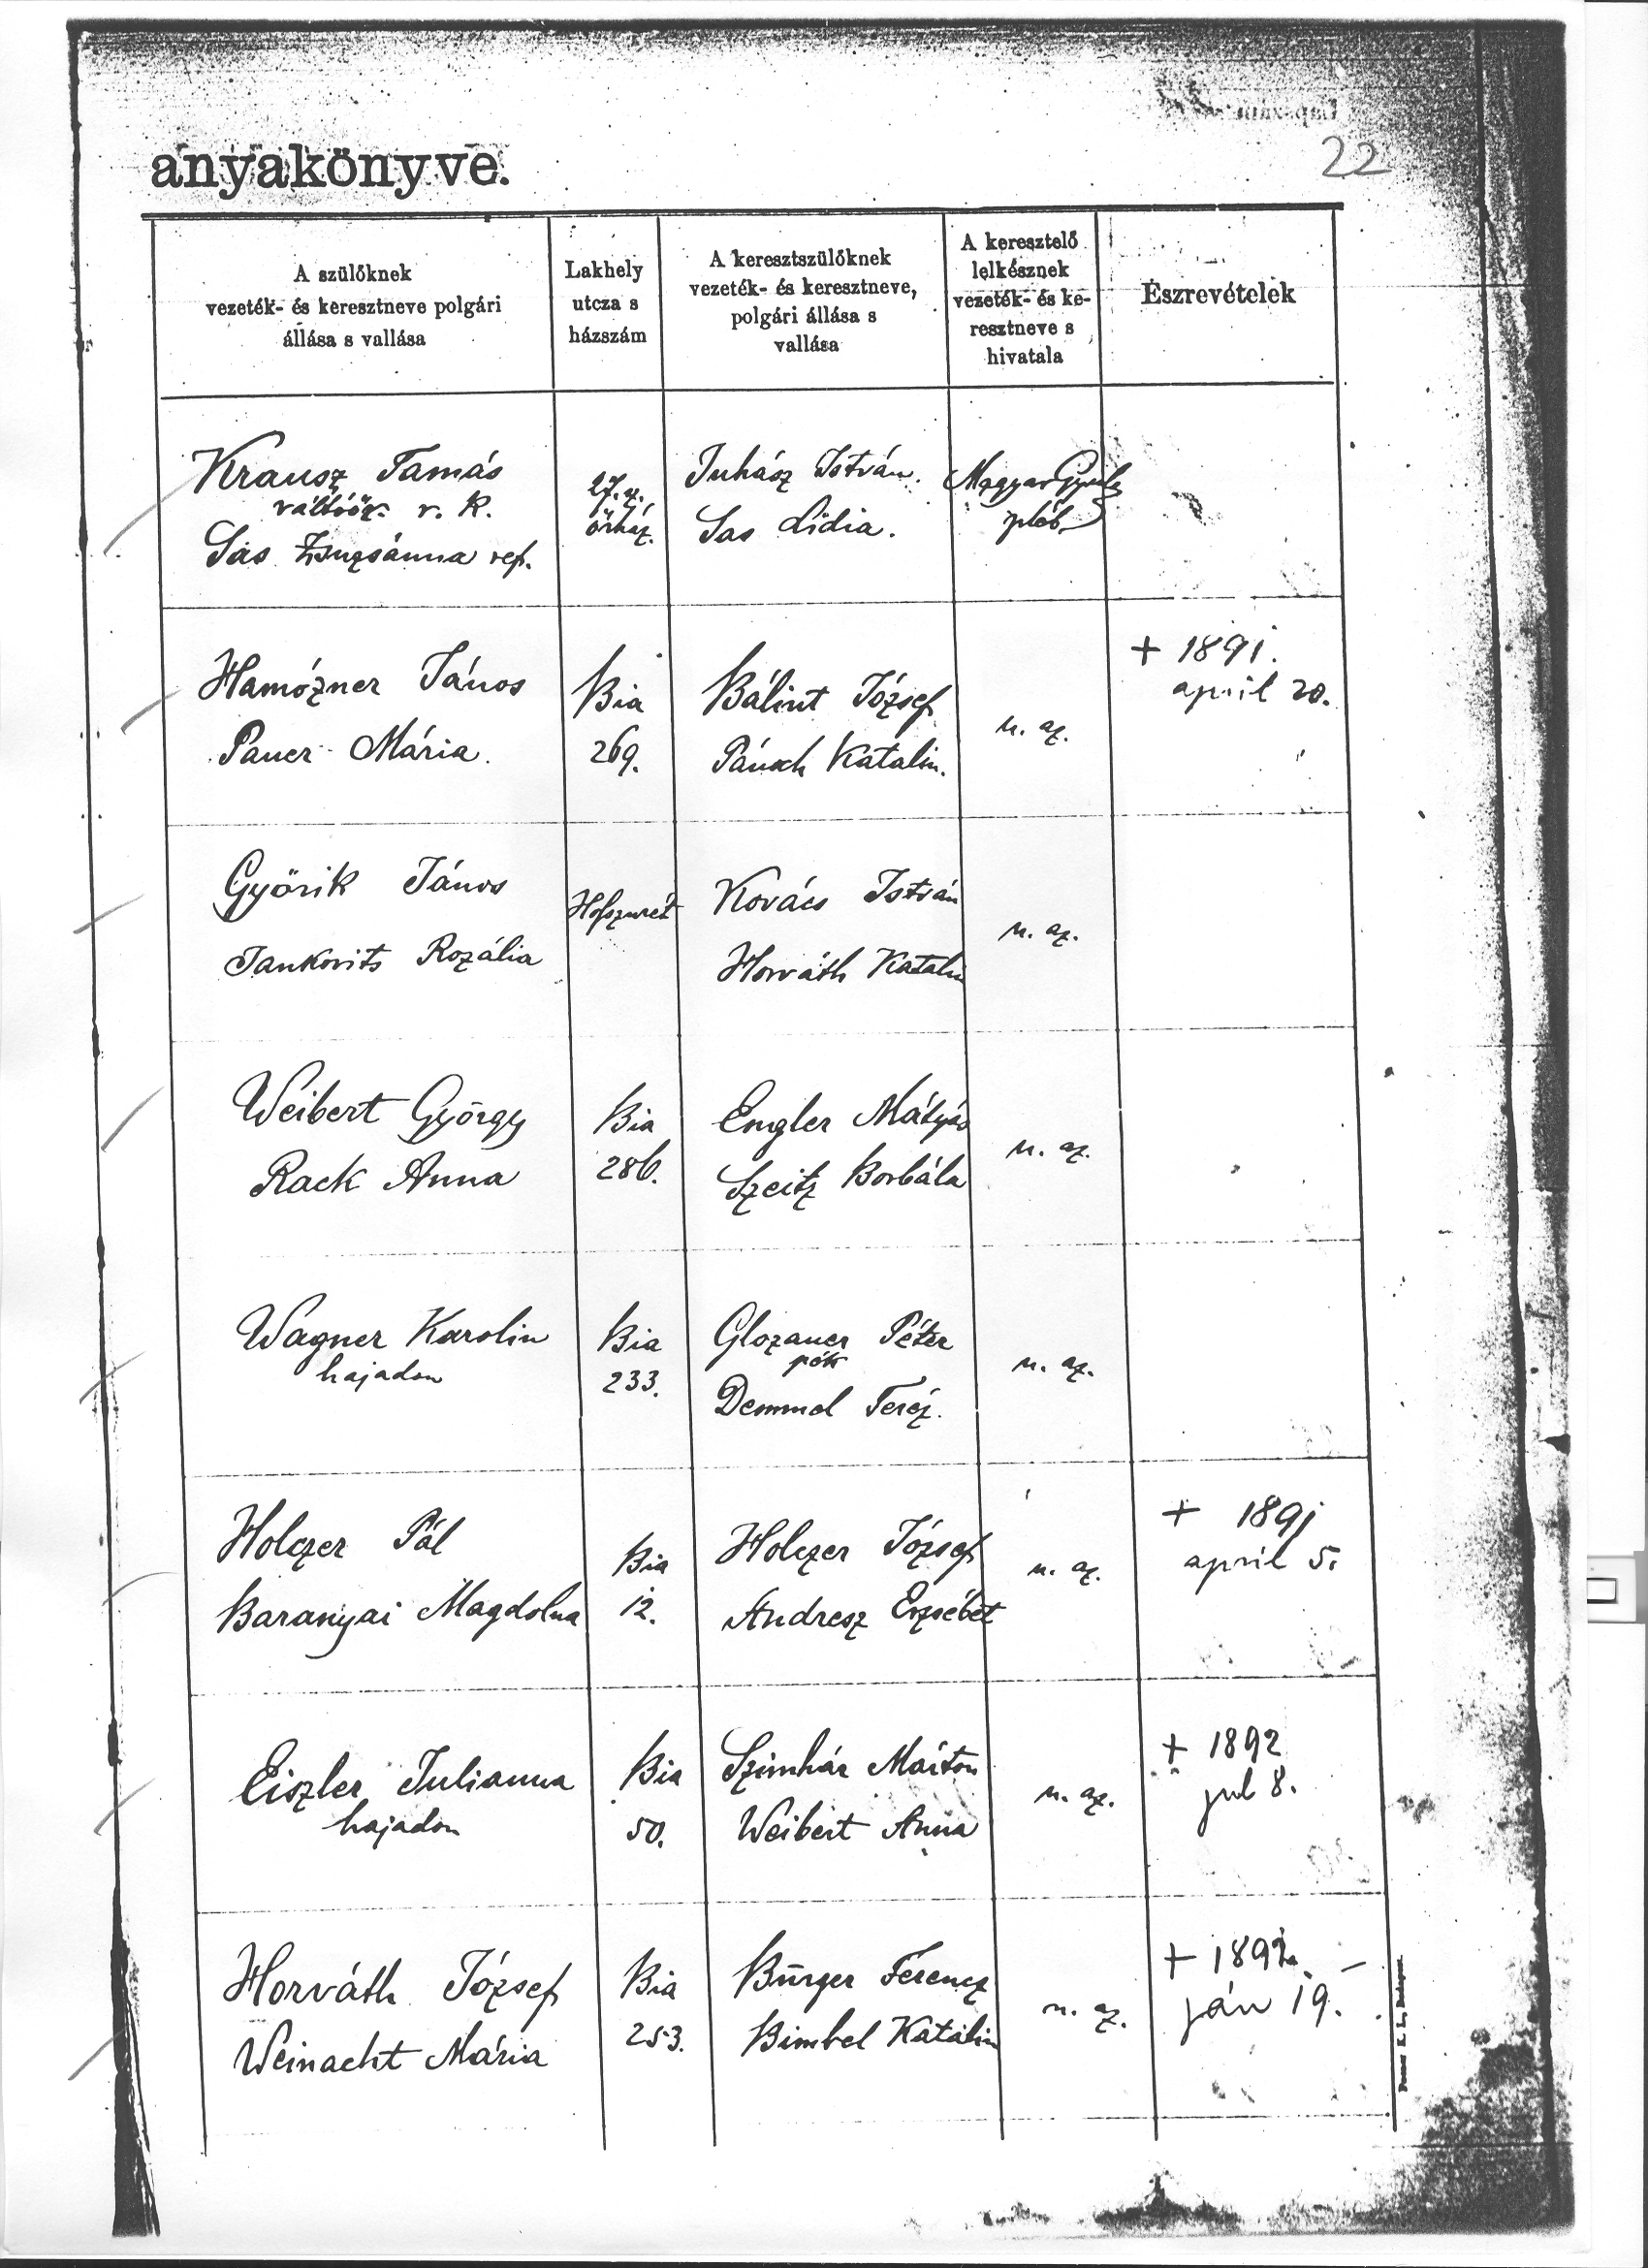 22
anyakönyve.
A szülőknek
vezeték- és keresztneve polgári
állása s vallása
Lakhely
utcza s
házszám
A keresztszülőknek
vezeték- és keresztneve,
polgári állása s
vallása
A keresztelő
lelkésznek
vezeték- és ke-
resztneve s
hivatala
Észrevételek
Krausz Tamás
váltóőr r. k.
Sas Zsuzsánna ref.
27. sz.
őrház.
Juhász István.
Sas Lidia.
Magyar Gyula
pléb.
Hamózner János
Pauer Mária.
Bia
269.
Bálint József
Páusch Katalin.
u. az.
+ 1891.
april 20.
Győrik János
Jankovits Rozália
Kovács István
Horváth Katalin
u. az.
Weibert György
Rack Anna
Bia
286.
Engler Mátyás
Szeitz Borbála
u. az.
Wagner Karolin
hajadon
Bia
233.
Glozauer Péter
Demmel Teréz.
u. az.
Holczer Pál
Baranyai Magdolna
Bia
12.
Holczer József
Andresz Erzsébet
u. az.
+ 1891
april 5.
Eiszler Julianna
hajadon
Bia
50.
Szimhár Márton
Weibert Anna
u. az.
+ 1892
jul 8.
Horváth József
Weinacht Mária
Bia
253.
Bürger Ferencz
Bimbel Katalin
u. az.
+ 1892. –
ján 19.